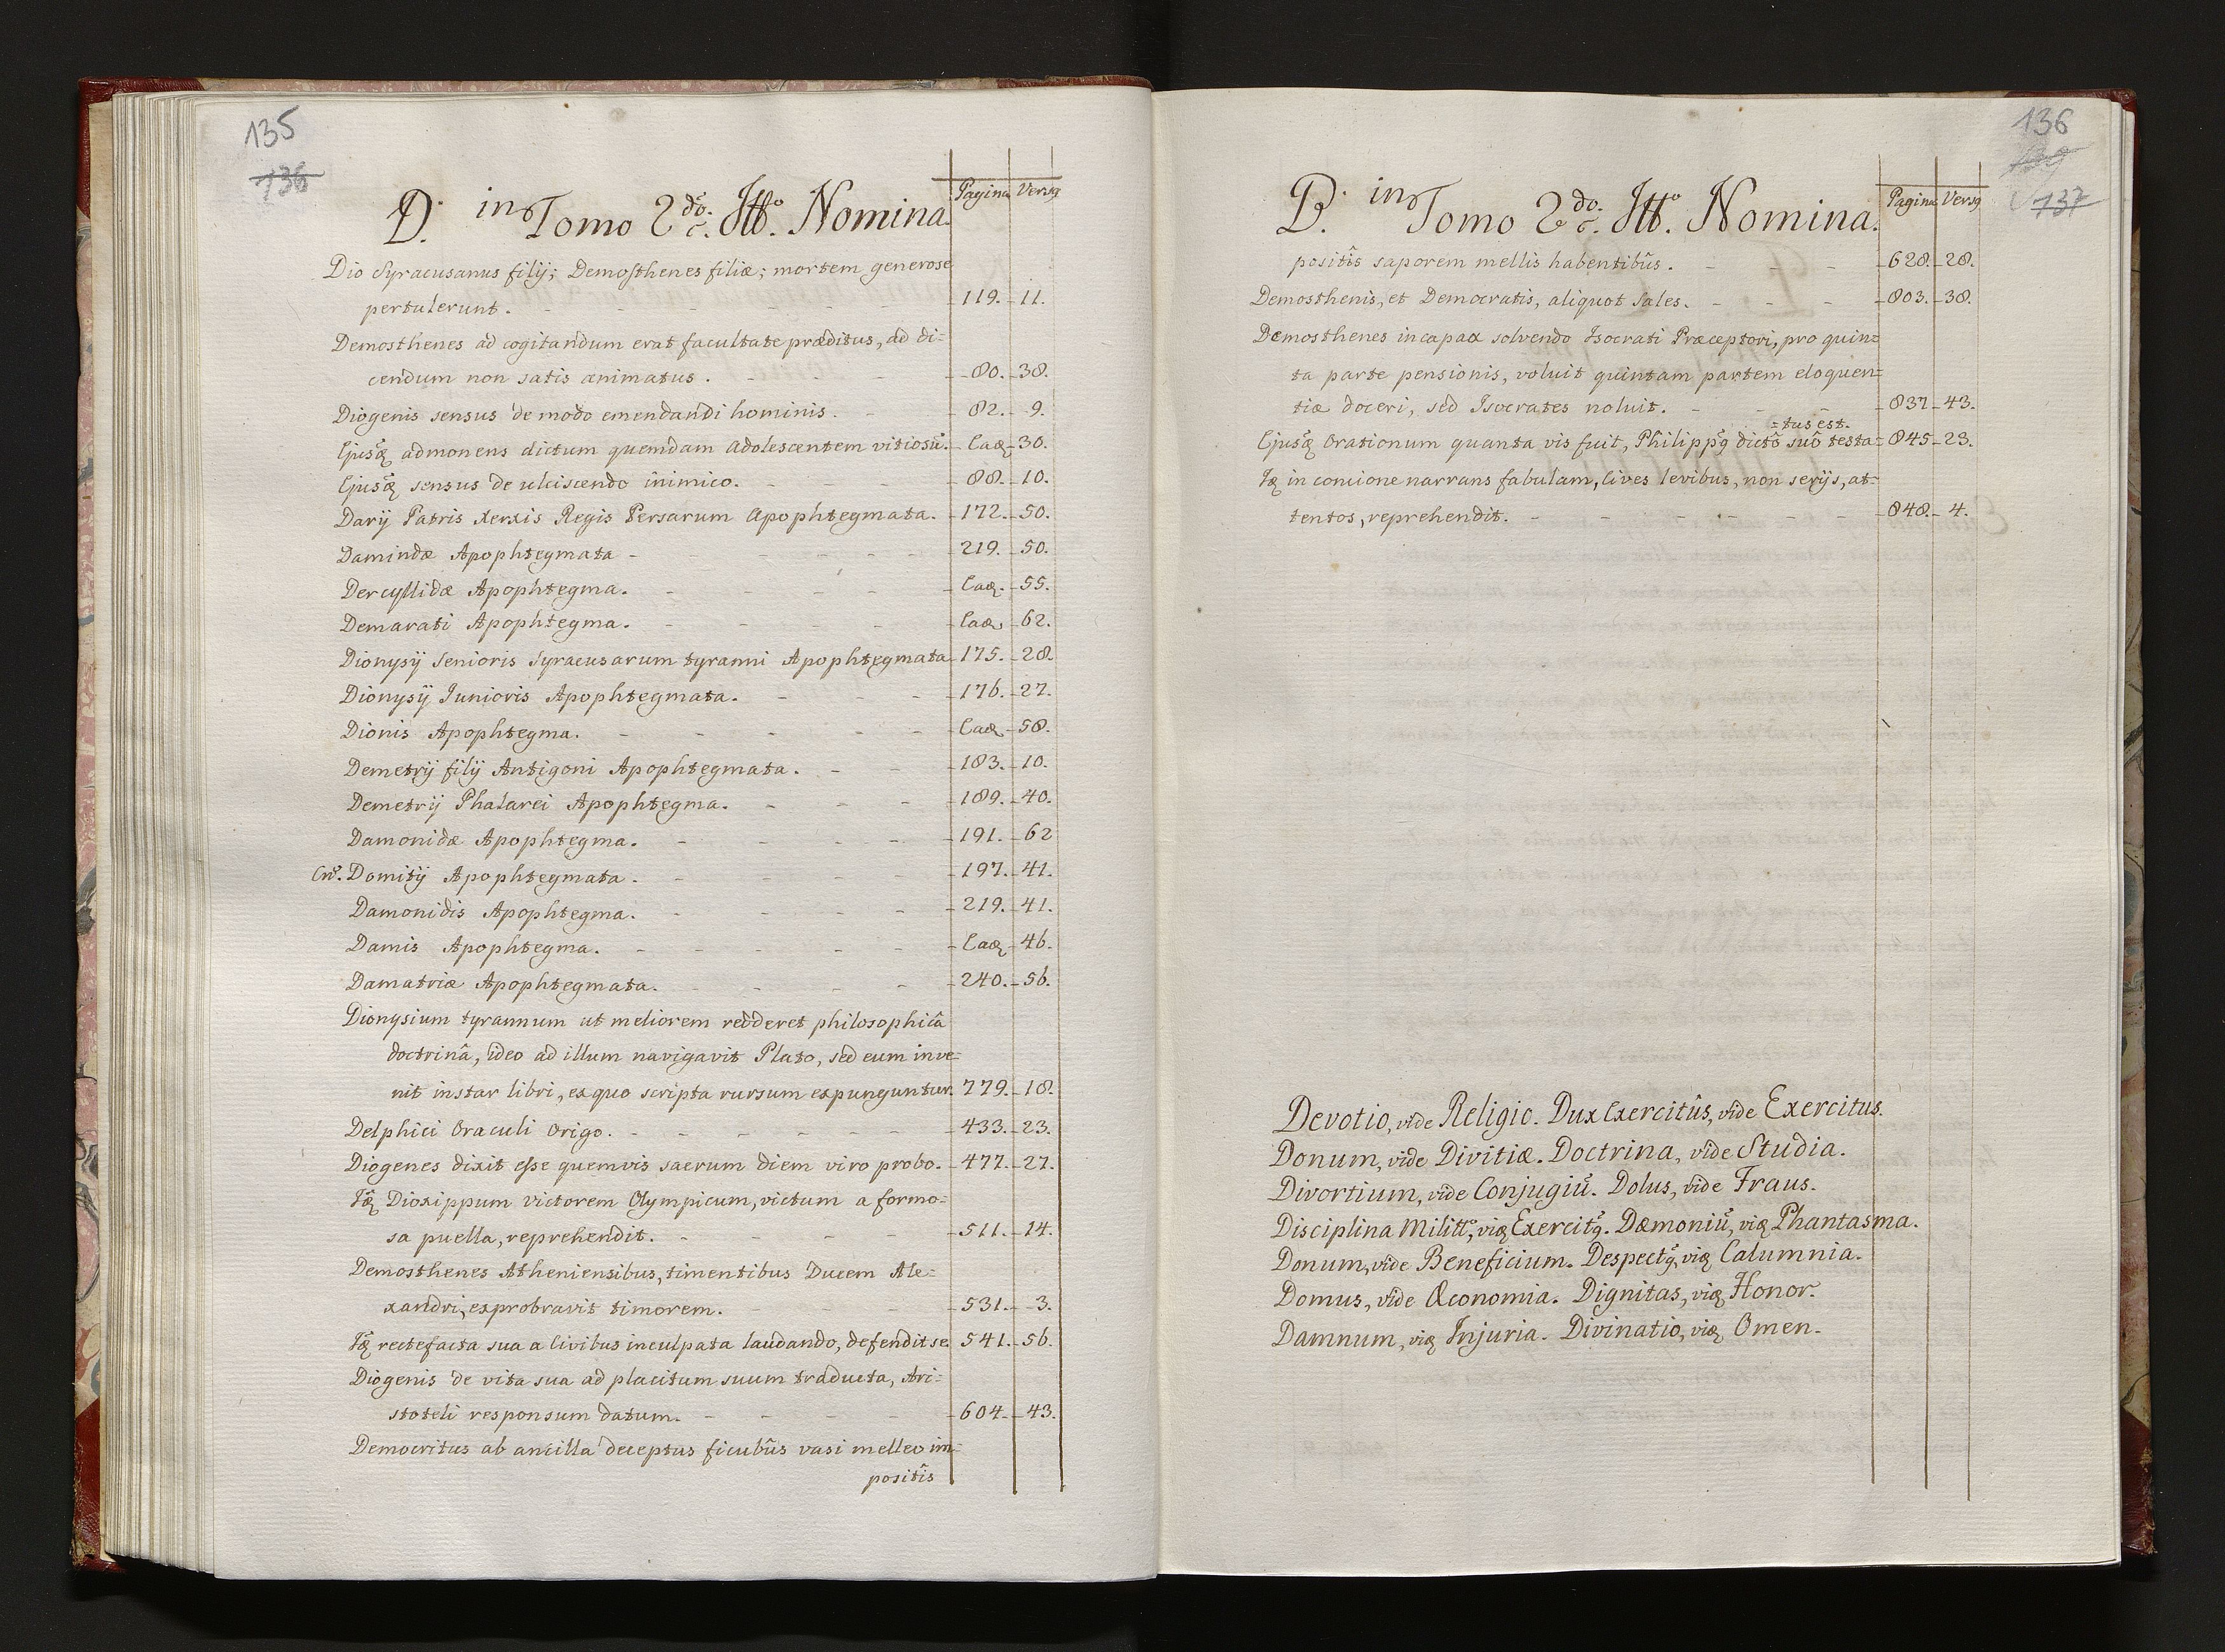 135
136
D. in Tomo 2do. Itto. Nomina.
Pagina Versq
Dio Syracusanus filij; Demosthenes filiæ; mortem generose
pertulerunt. - 119. - 11.
Demosthenes ad cogitandum erat facultate præditus, ad di=
cendum non satis animatus. - 80. - 38.
Diogenis sensus de modo emendandi hominis. - 82. - 9.
Ejusq admonens dictum quemdam adolescentem vitiosū. - Eaq - 30.
Ejusq sensus de ulciscendo inimico. - 88. - 10.
Darij Patris Xerxis Regis Persarum Apophtegmata. - 172. - 50.
Damindæ Apophtegmata - 219. - 50.
Dercyllidæ Apophtegma. - Eaq. - 55.
Demarati Apophtegma. - Eaq - 62.
Dionysij Senioris Syracusarum tyranni Apophtegmata 175. - 28.
Dionysij Junioris Apophtegmata. - 176. - 27.
Dionis Apophtegma. - Eaq - 58.
Demetrij filij Antigoni Apophtegmata. - 183. - 10.
Demetrij Phalarei Apophtegma. - 189. - 40.
Damonidæ Apophtegma. - 191. - 62
Cn. Domitij Apophtegmata. - 197. - 41.
Damonidis Apophtegma. - 219. - 41.
Damis Apophtegma. - Eaq - 46.
Damatriæ Apophtegmata. - 240. - 56.
Dionysium tyrannum ut meliorem redderet philosophicâ
doctrinâ, ideo ad illum navigavit Plato, sed eum inve=
nit instar libri, ex quo scripta rursum expunguntur. 779. - 18.
Delphici Oraculi Origo. - 433. - 23.
Diogenes dixit esse quemvis sacrum diem viro probo. - 477. - 27.
Iq Dioxippum victorem Olympicum, victum a formo=
sa puella, reprehendit. - 511. - 14.
Demosthenes Atheniensibus, timentibus Ducem Ale=
xandri, exprobravit timorem. - 531. - 3.
Iq rectefacta sua a Civibus inculpata laudando, defendit se. 541. - 56.
Diogenis de vita sua ad placitum suum traducta, Ari=
stoteli responsum datum. - 604. - 43.
Democritus ab ancilla deceptus ficubûs vasi melleo im=
positîs
136
137
D. in Tomo 2do. Itto. Nomina.
Pagina Versq
positîs saporem mellis habentibûs. - 628. - 28.
Demosthenis, et Democratis, aliquot Sales. - 803. - 38.
Demosthenes incapax solvendo Isocrati Præceptori, pro quin=
ta parte pensionis, voluit quintam partem eloquen=
tiæ doceri, sed Isocrates noluit. - 837 - 43.
=tus est.
Ejusq Orationum quanta vis fuit, Philippq dictô suô testa= 845 - 23.
Iq in concione narrans fabulam, Cives levibus, non serijs, at=
tentos, reprehendit. - 848. - 4.
Devotio, vide Religio. Dux Exercitûs, vide Exercitus.
Donum, vide Divitiæ. Doctrina, vide Studia.
Divortium, vide Conjugiū. Dolus, vide Fraus.
Disciplina Militt, viq Exercitq. Dæmoniū, viq Phantasma.
Donum, vide Beneficium. Despectq, viq Calumnia.
Domus, vide Œconomia. Dignitas, viq Honor.
Damnum, viq Injuria. Divinatio, viq Omen.